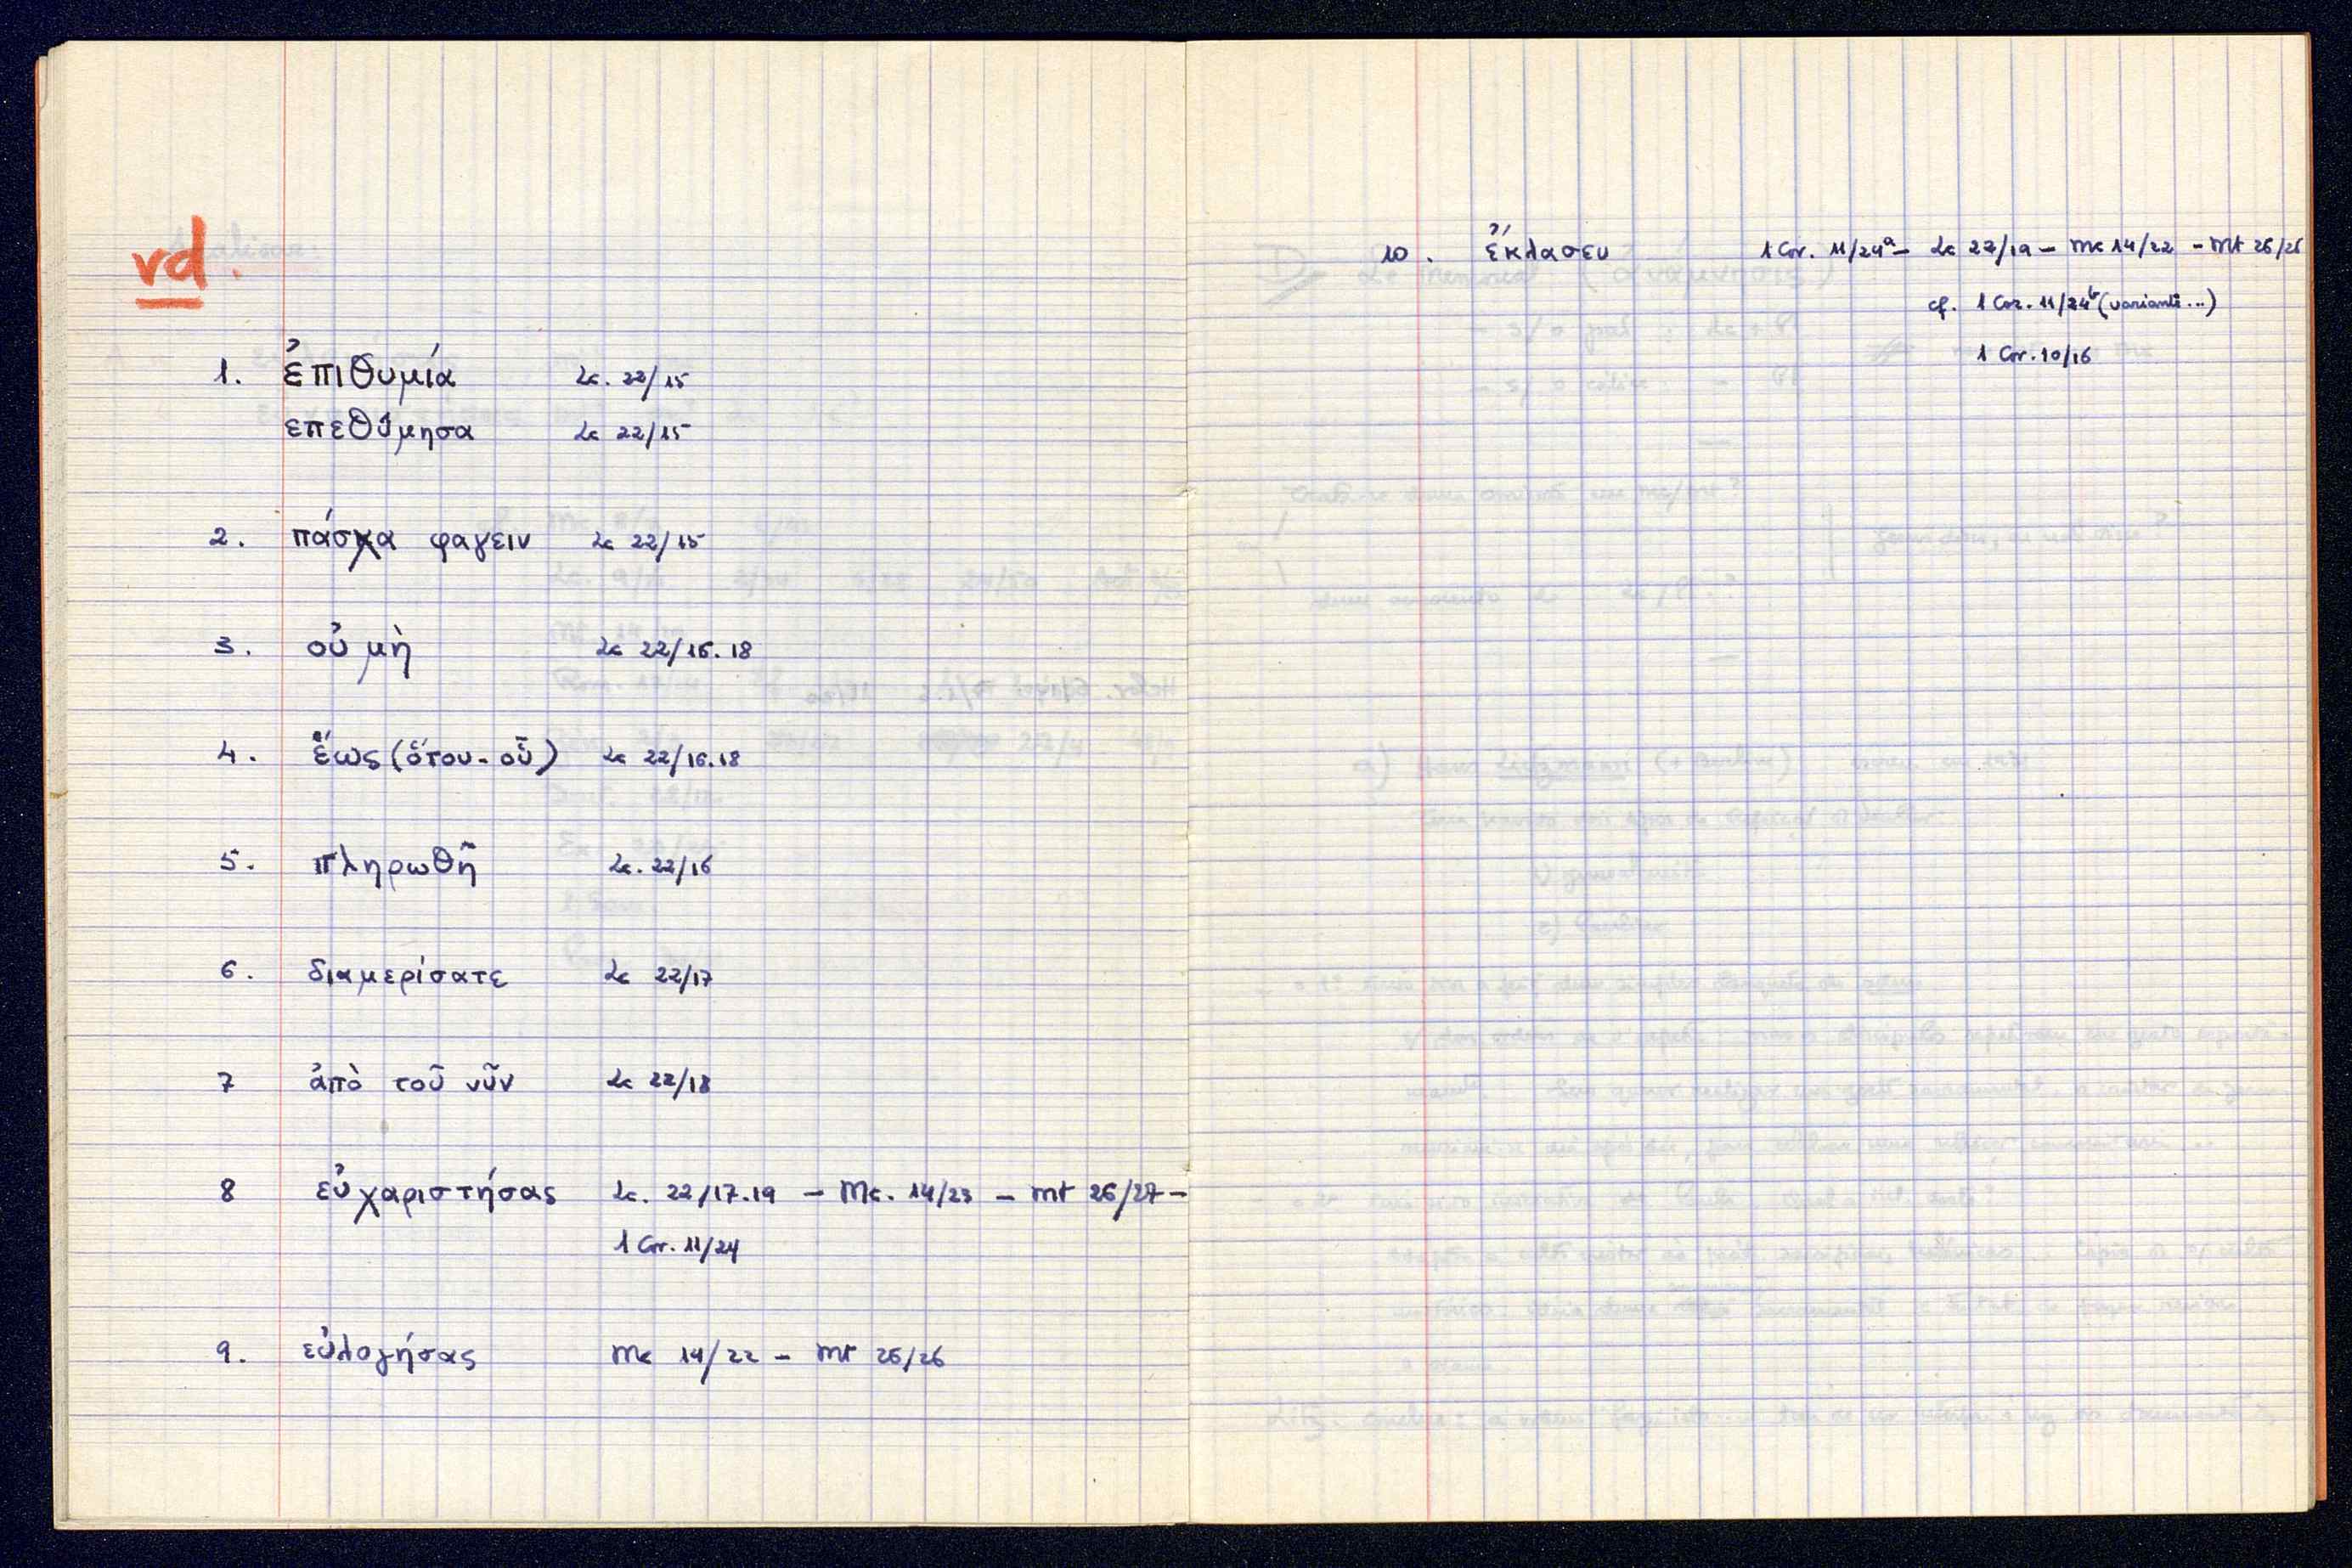 vd.
1. ἐπιθυμία Lc. 22/15
επεθύμησα Lc 22/15
2. πάσχα φαγειν Lc 22/15
3. οὐ μὴ Lc 22/16.18
4. ἕως (ὅτου - οὗ) Lc 22/16.18
5. πληρωθῆ Lc. 22/16
6. διαμερίσατε Lc 22/17
7 ἀπὸ τοῦ νῦν Lc 22/18
8 εὐχαριστήσας Lc. 22/17.19 - Mc. 14/23 - Mt 26/27 -
1 Cor. 11/24
9. εὐλογήσας Mc 14/22 - Mt 26/26
10. ἔκλασεν 1 Cor. 11/24a - Lc 22/19 - Mc 14/22 - Mt 26/26
cf. 1 Cor. 11/24b (variante...)
1 Cor. 10/16